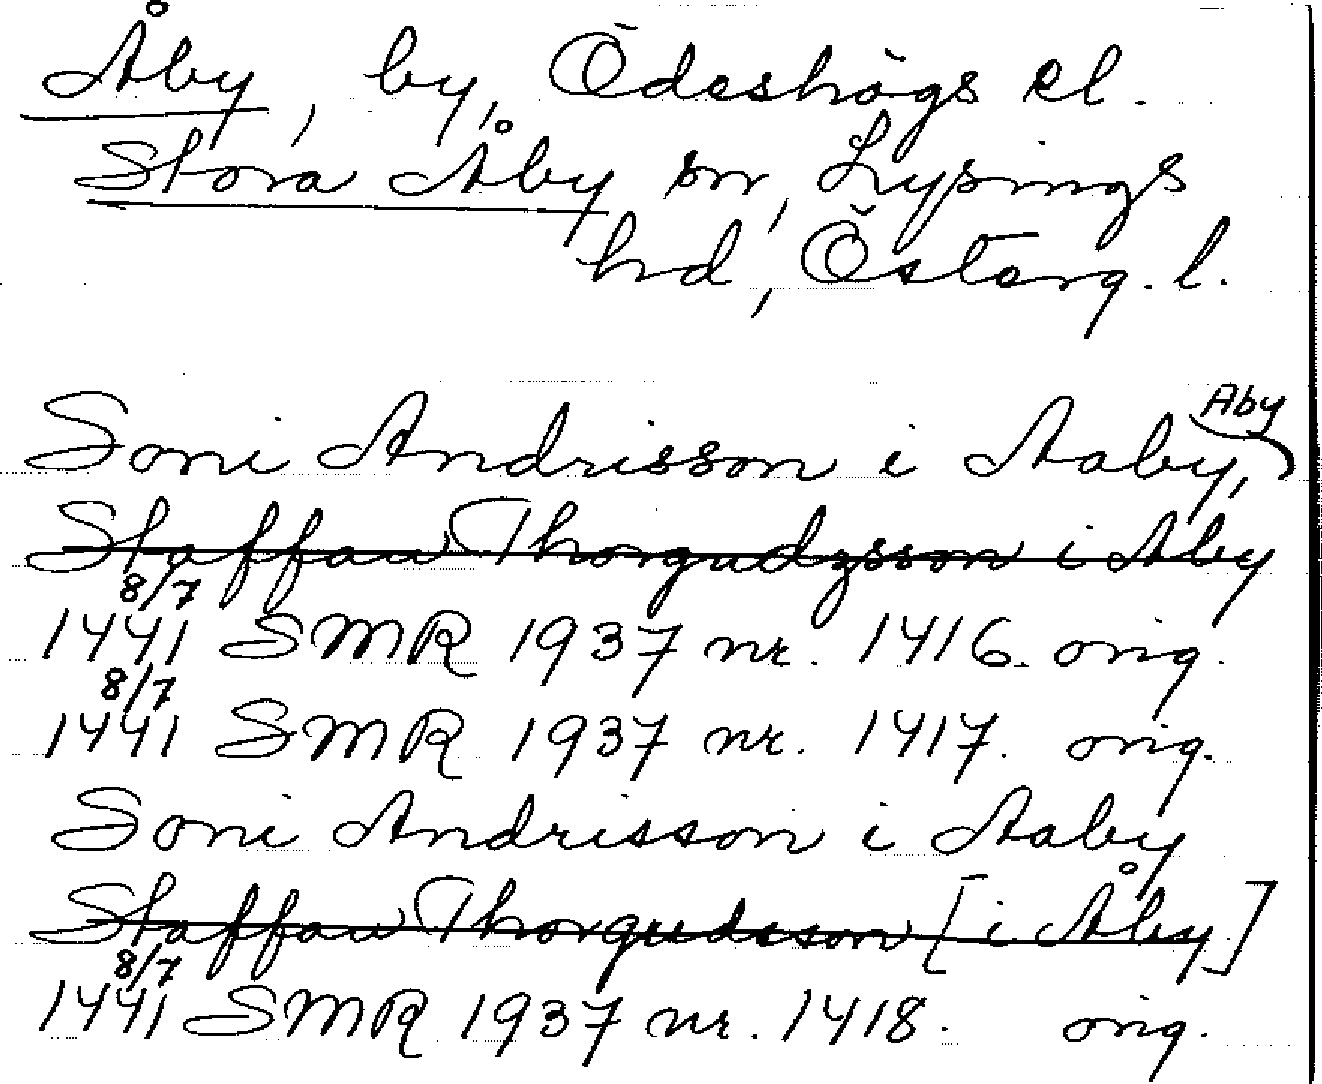 Åby, by, Ödeshögs kl.
Stora Åby sn, Lysings
hd, Österg. l.
Soni Andrisson i Aaby, Aby
Staffan Thorgudzsson i Aby
8/7
1441 SMR 1937 nr. 1416. orig.
8/7
1441 SMR 1937 nr. 1417. orig.
Soni Andrisson i Aaby
Staffan Thorgudsson [i Åby]
8/7
1441 SMR 1937 nr. 1418. orig.